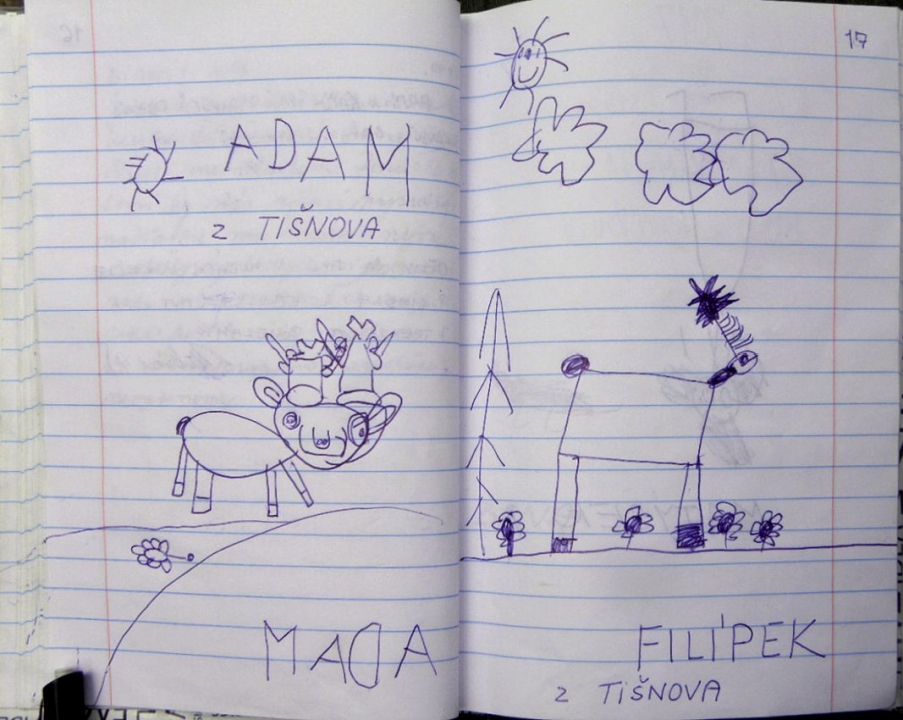 ADAM
z TIŠNOVA
MAGA
17
FILÍPEK
z TIŠNOVA